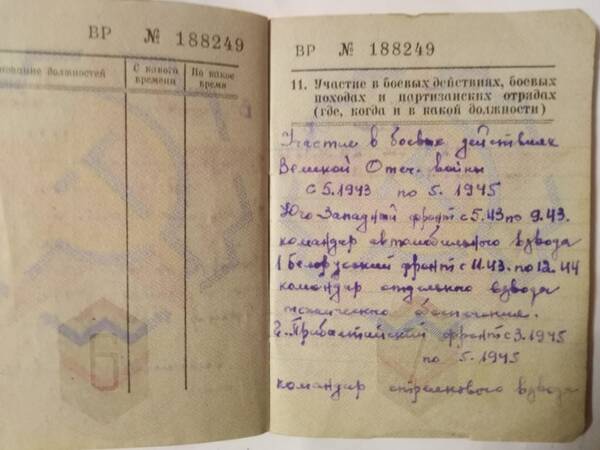 ВР № 188249
нование должностей
С какого времени
По какое время
6
ВР № 188249
11. Участие в боевых действиях, боевых
походах и партизанских отрядах
(где, когда и в какой должности)
Участие в боевых действиях
Великой Отеч. войны
с 5.1943 по 5. 1945
Юго Западный фронт с 5.43 по 9.43.
командир автомобильного взвода
1 Белорусский фронт с 11.43. по 12.44
командир отдельного взвода
технического обеспечения.
2. Прибалтийский фронт с 3.1945
по 5.1945
командир стрелкового взвода
7